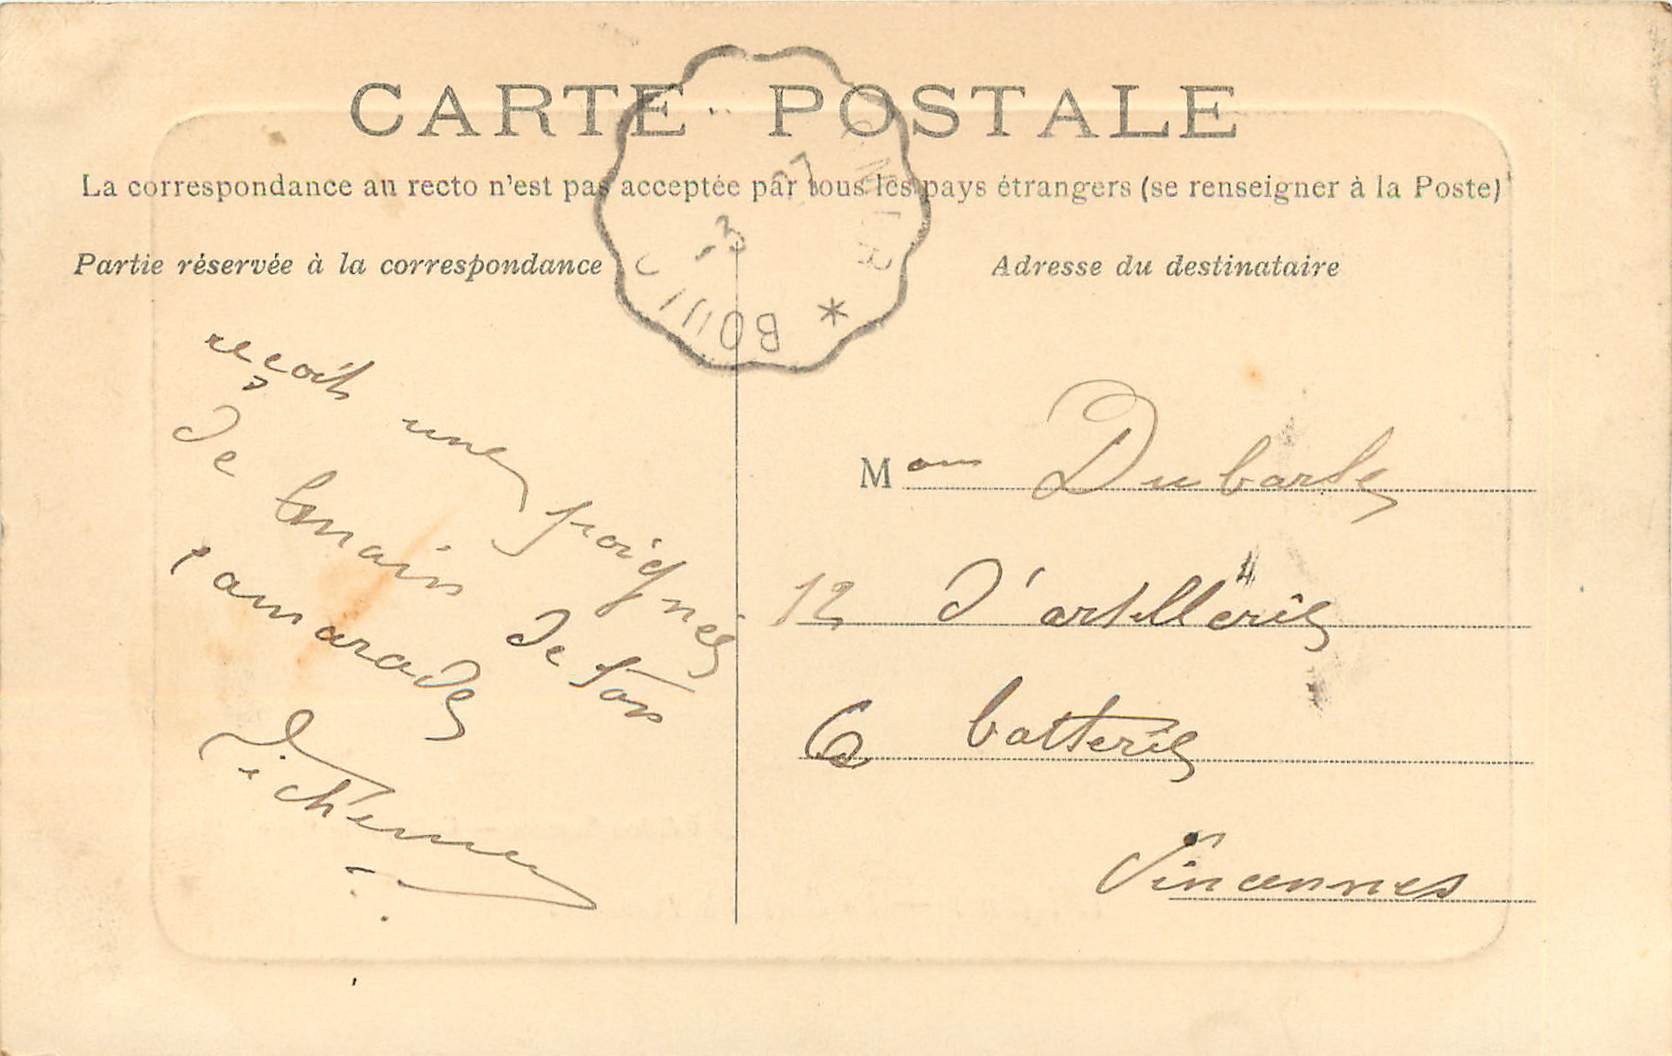 CARTE POSTALE
La correspondance au recto n'est pas acceptée par tous les pays étrangers (se renseigner à la Poste)
Partie réservée à la correspondance
Adresse du destinataire
-3
BOU
*
reçoit une poignée
de main de ton
camarade
M Dubarle
12 d'artillerie
6 batterie
Vincennes